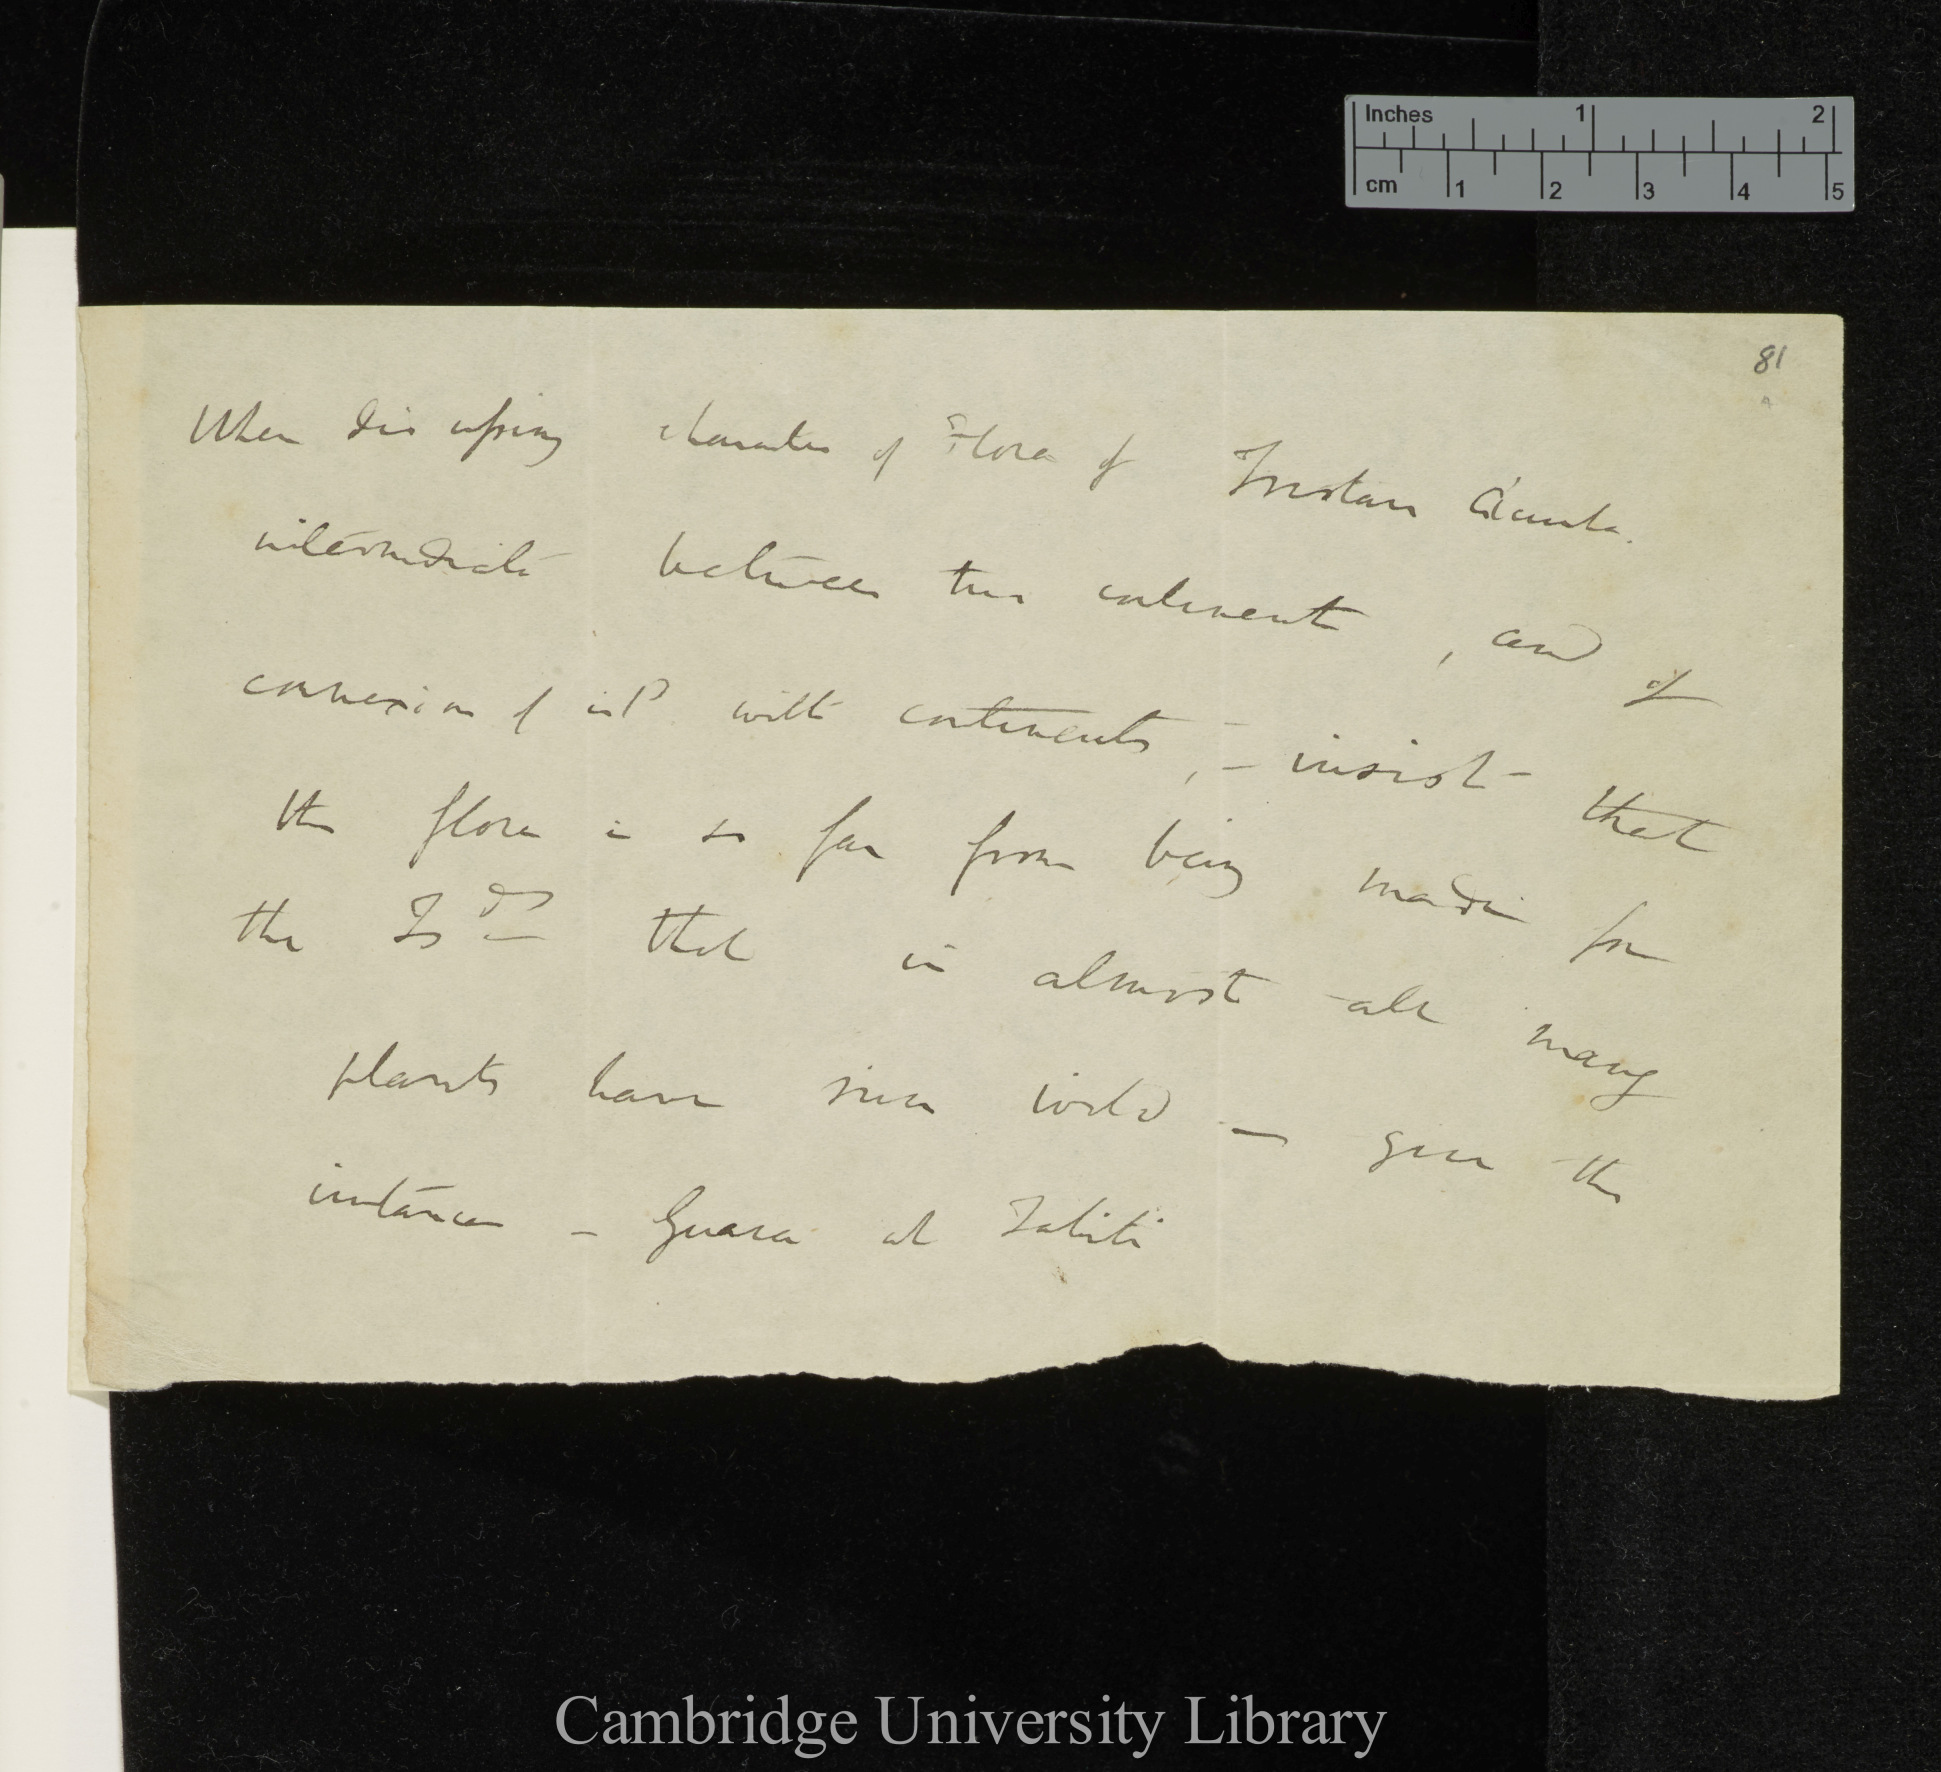 Inches 1 2
cm 1 2 3 4 5
81
When discussing character of Flora of Tristan d'Acunha.
intermediate between two continent, and of
connexion of isd with continents, – insist that
the flora is so far from being made for
the Isds that in almost all many
plants have run wild — give the
instances – Guava at Tahiti
Cambridge University Library